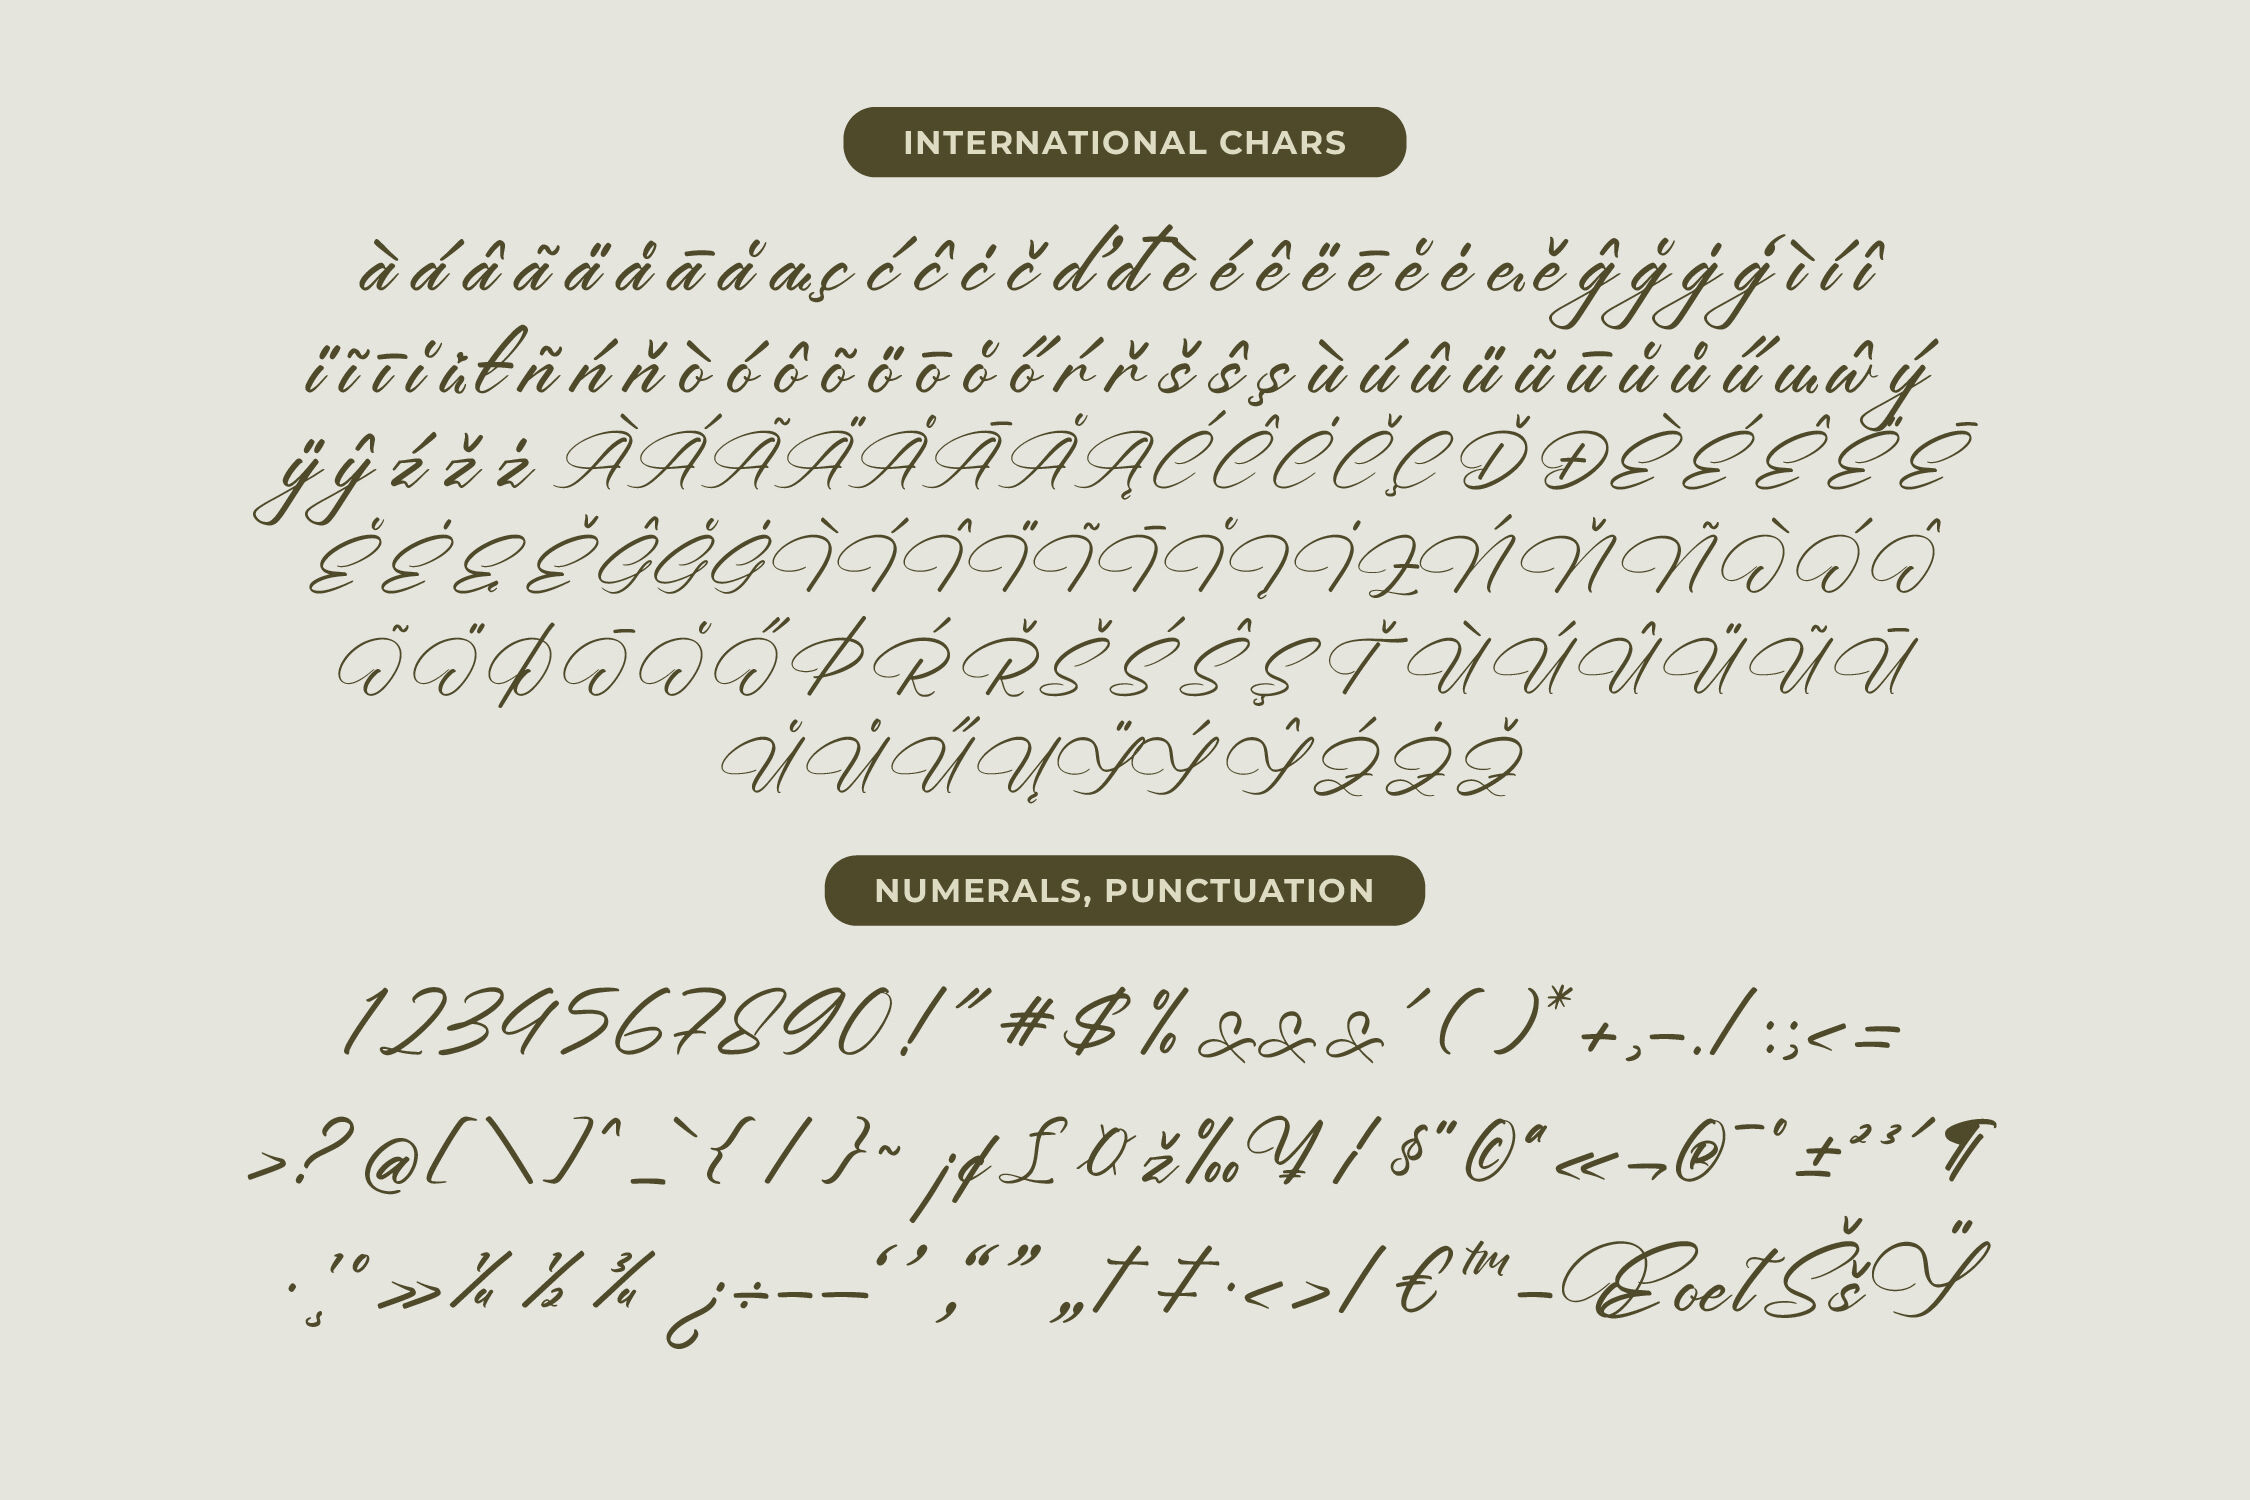 INTERNATIONAL CHARS
à á â ã ä å ā ă ą ç ć ĉ ċ č ď đ è é ê ë ē ĕ ė ę ě ĝ ğ ġ ģ ì í î
ï ĩ ī ĭ į ł ñ ń ň ò ó ô õ ö ō ŏ ő ŕ ř š ŝ ş ù ú û ü ũ ū ŭ ů ű ų ŵ ý
ÿ ŷ ź ž ż À Á Ã Ä Å Ā Ă Ą Ć Ĉ Ċ Č Ç Ď Đ È É Ê Ë Ē
Ĕ Ė Ę Ě Ĝ Ğ Ġ Ì Í Î Ï Ĩ Ī Ĭ Į İ Ł Ń Ň Ñ Ò Ó Ô
Õ Ö Ø Ō Ŏ Ő Ŕ Ř Š Ś Ŝ Ş Ť Ù Ú Û Ü Ũ Ū
Ŭ Ů Ű Ų Ÿ Ý Ŷ Ź Ż Ž
NUMERALS, PUNCTUATION
1 2 3 4 5 6 7 8 9 0 ! " # $ % & & & ' ( ) * + , - . / : ; < =
> ? @ [ \ ] ^ _ ` { | } ~ ¡ ¢ £ ¤ ž ‰ ¥ ¦ § ¨ © ª « ¬ ® ¯ ° ± ² ³ ´ ¶
· ¸ ¹ º » ¼ ½ ¾ ¿ ÷ – — ‘ ’ , “ ” „ † ‡ · < > / € ™ − Œ œ t Š š Ÿ